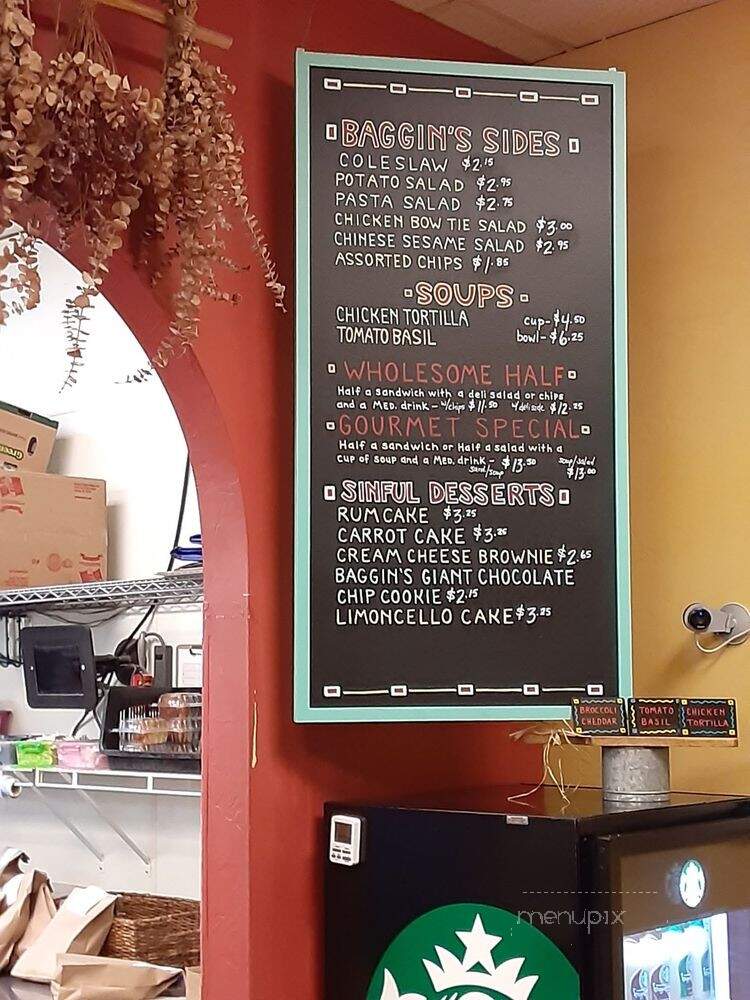 BAGGIN'S SIDES
COLESLAW $2.15
POTATO SALAD $2.95
PASTA SALAD $2.75
CHICKEN BOW TIE SALAD $3.00
CHINESE SESAME SALAD $2.95
ASSORTED CHIPS $1.85
SOUPS
CHICKEN TORTILLA cup-$4.50
TOMATO BASIL bowl-$6.25
WHOLESOME HALF
Half a sandwich with a deli salad or chips
and a MED. drink - w/chips $11.50 w/deli side $12.25
GOURMET SPECIAL
Half a sandwich or Half a salad with a
cup of soup and a MED. drink - $13.50 soup/salad
sand/soup $13.00
SINFUL DESSERTS
RUM CAKE $3.25
CARROT CAKE $3.25
CREAM CHEESE BROWNIE $2.65
BAGGIN'S GIANT CHOCOLATE
CHIP COOKIE $2.15
LIMONCELLO CAKE $3.25
BROCCOLI TOMATO CHICKEN
CHEDDAR BASIL TORTILLA
menupix